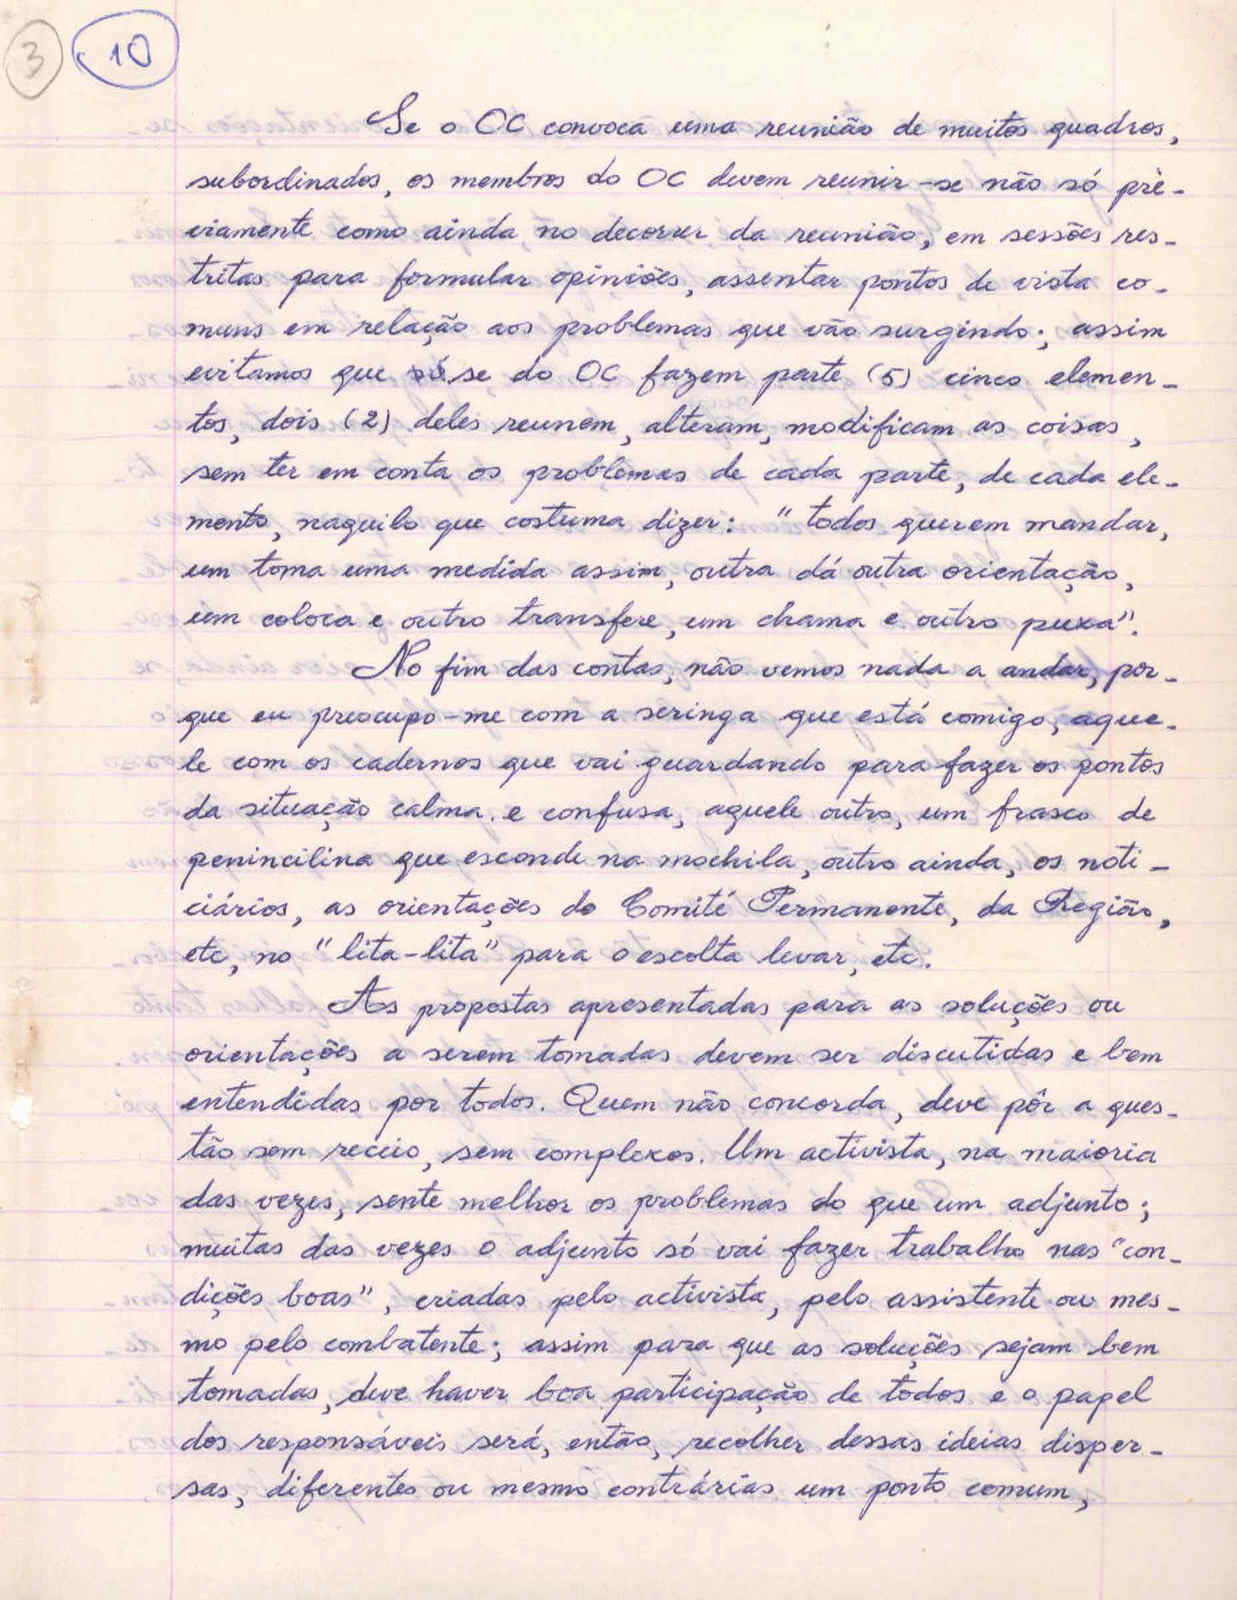 3 10
Se o OC convoca uma reunião de muitos quadros,
subordinados, os membros do OC devem reunir-se não só prè-
viamente como ainda no decorrer da reunião, em sessões res-
tritas para formular opiniões, assentar pontos de vista co-
muns em relação aos problemas que vão surgindo; assim
evitamos que se do OC fazem parte (5) cinco elemen-
tos, dois (2) deles reunem, alteram, modificam as coisas,
sem ter em conta os problemas de cada parte, de cada ele-
mento, naquilo que costuma dizer: "todos querem mandar,
um toma uma medida assim, outra dá outra orientação,
um coloca e outro transfere, um chama e outro puxa".
No fim das contas, não vemos nada a andar, por-
que eu preocupo-me com a seringa que está comigo, aque-
le com os cadernos que vai guardando para fazer os pontos
da situação calma e confusa, aquele outro, um frasco de
penincilina que esconde na mochila, outro ainda, os noti-
ciários, as orientações do Comité Permanente, da Região,
etc, no "lita-lita" para o escolta levar, etc.
As propostas apresentadas para as soluções ou
orientações a serem tomadas devem ser discutidas e bem
entendidas por todos. Quem não concorda, deve pôr a ques-
tão sem receio, sem complexos. Um activista, na maioria
das vezes, sente melhor os problemas do que um adjunto;
muitas das vezes o adjunto só vai fazer trabalho nas "con-
dições boas", criadas pelo activista, pelo assistente ou mes-
mo pelo combatente; assim para que as soluções sejam bem
tomadas, deve haver boa participação de todos e o papel
dos responsáveis será, então, recolher dessas ideias disper-
sas, diferentes ou mesmo contrárias um ponto comum,